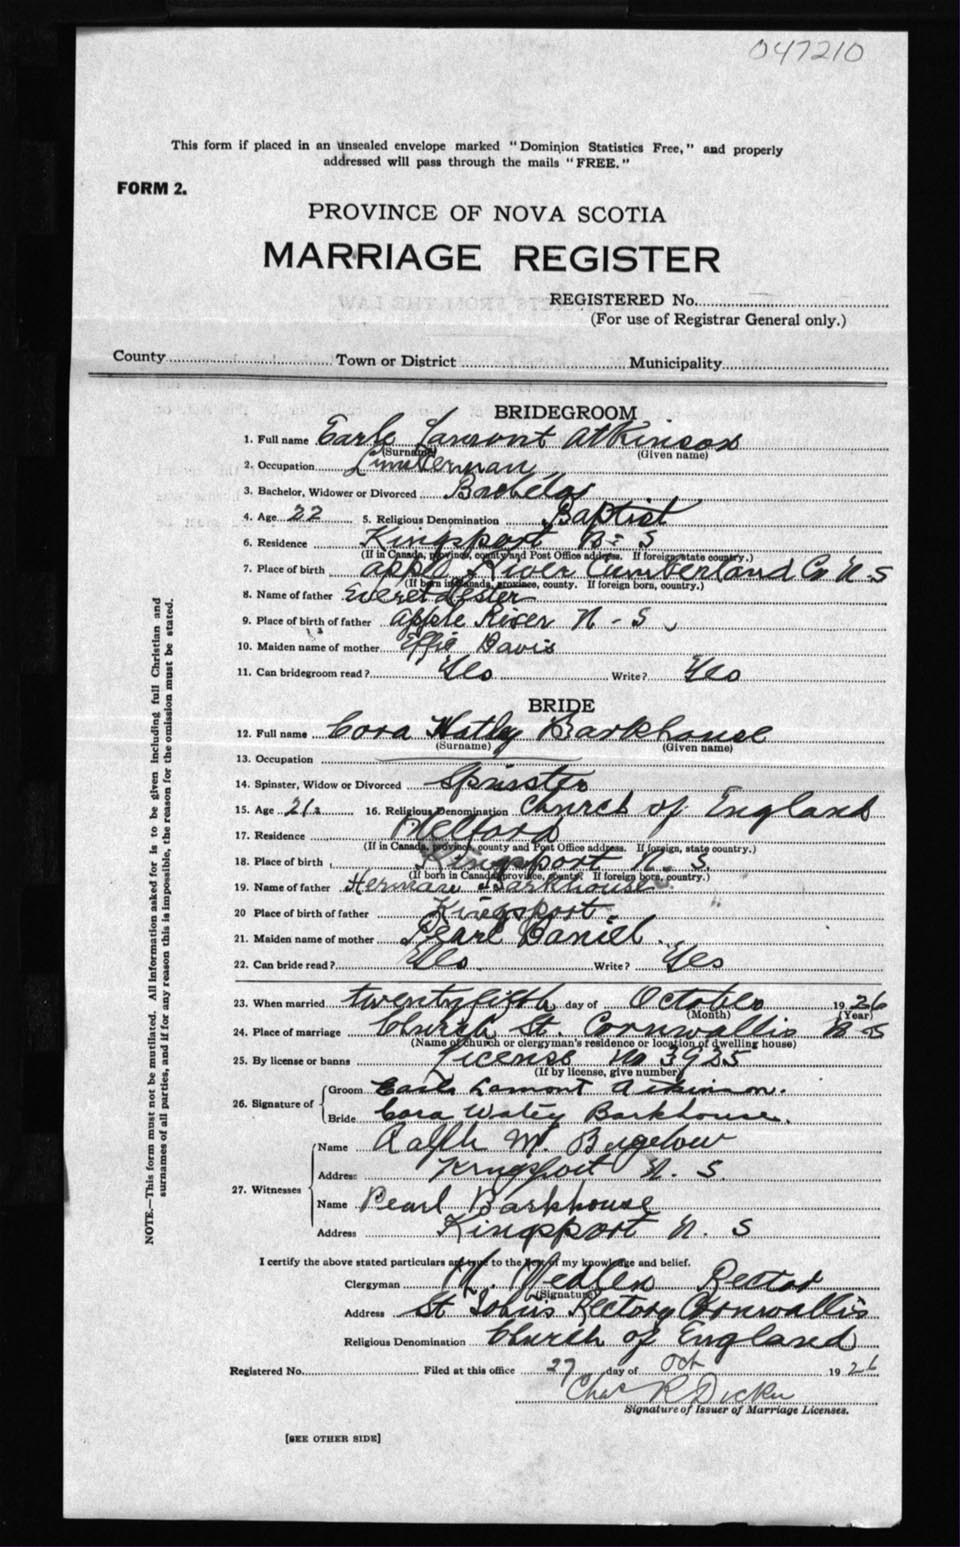 047210
This form if placed in an unsealed envelope marked "Dominion Statistics Free," and properly
addressed will pass through the mails "FREE."
FORM 2.
PROVINCE OF NOVA SCOTIA
MARRIAGE REGISTER
REGISTERED No.
(For use of Registrar General only.)
County Town or District Municipality
BRIDEGROOM
1. Full name Earle Lamont Atkinson
(Surname) (Given name)
2. Occupation Lumberman
3. Bachelor, Widower or Divorced Bachelor
4. Age 22 5. Religious Denomination Baptist
6. Residence Kingsport N. S
(If in Canada, province, county and Post Office address. If foreign, state country.)
7. Place of birth apple River Cumberland Co N.S
(If born in Canada, province, county. If foreign born, country.)
8. Name of father Everet Lester
9. Place of birth of father apple River N - S
10. Maiden name of mother Effie Davis
11. Can bridegroom read? Yes Write? Yes
BRIDE
12. Full name Cora Barkhouse
(Surname) (Given name)
13. Occupation
14. Spinster, Widow or Divorced Spinster
15. Age 21 16. Religious Denomination Church of England
17. Residence
(If in Canada, province, county and Post Office address. If foreign, state country.)
18. Place of birth Kingsport N. S.
(If born in Canada, province, county. If foreign born, country.)
19. Name of father Herman Barkhouse
20 Place of birth of father Kingsport
21. Maiden name of mother Pearl Daniel
22. Can bride read? Yes Write? Yes
23. When married twentyfifth day of October 1926
(Month) (Year)
24. Place of marriage Church St. Cornwallis N S
(Name of church or clergyman's residence or location of dwelling house)
25. By license or banns License No 3935
(If by license, give number)
26. Signature of Groom Earle Lamont Atkinson.
Bride Cora Barkhouse.
27. Witnesses Name Ralph W. Bigelow
Address Kingsport N. S.
Name Pearl Barkhouse
Address Kingsport N. S
I certify the above stated particulars are true to the best of my knowledge and belief.
Clergyman Rector
(Signature)
Address St John's Rectory Cornwallis
Religious Denomination Church of England
Registered No. Filed at this office 27 day of Oct 1926
Chas R Dickie
Signature of Issuer of Marriage Licenses.
[SEE OTHER SIDE]
NOTE.—This form must not be mutilated. All information asked for is to be given including full Christian and
surnames of all parties, and if for any reason this is impossible, the reason for the omission must be stated.